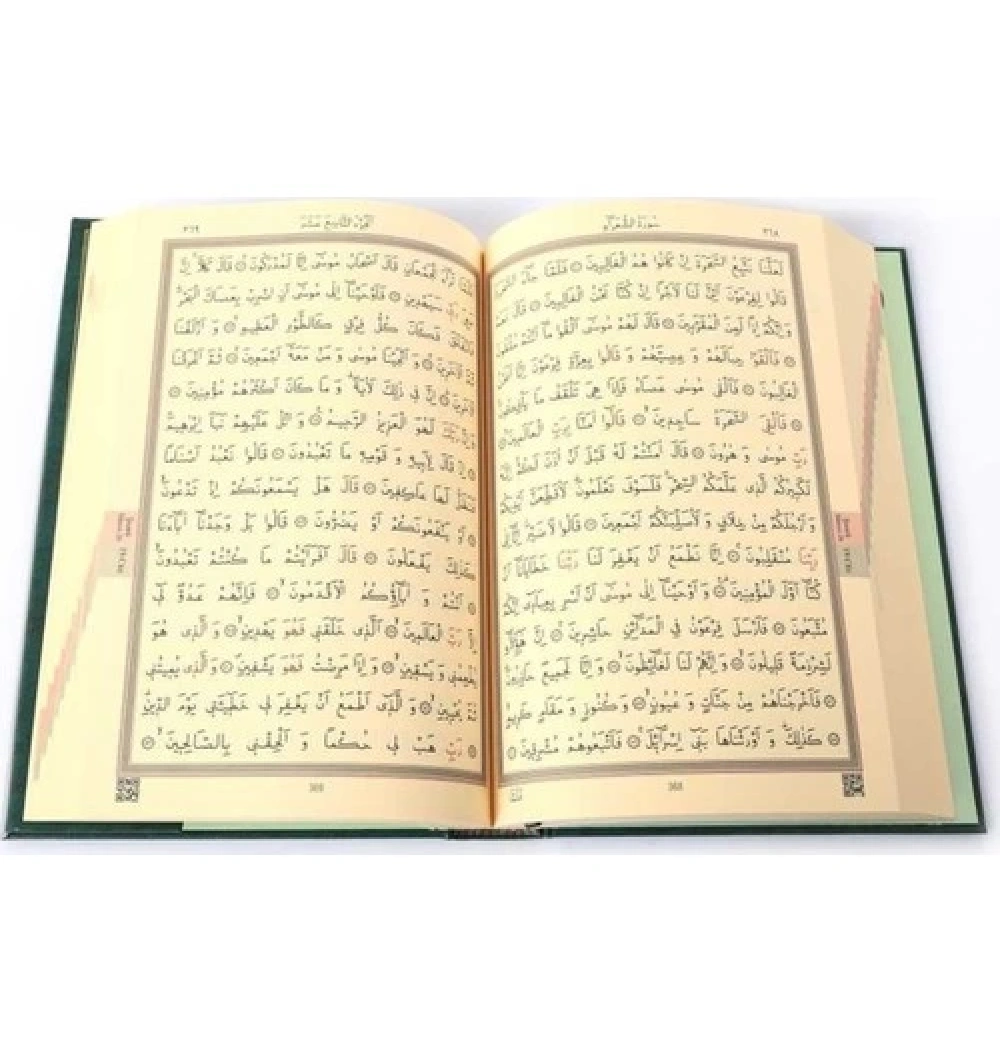 سورة الشعراء
٣٦٨
لَعَلَّنَا نَتَّبِعُ السَّحَرَةَ اِنْ كَانُوا هُمُ الْغَالِبِينَ ۝ فَلَمَّا جَاءَ السَّحَرَةُ
قَالُوا لِفِرْعَوْنَ اَئِنَّ لَنَا لَاَجْرًا اِنْ كُنَّا نَحْنُ الْغَالِبِينَ ۝ قَالَ نَعَمْ
وَ اِنَّكُمْ اِذًا لَمِنَ الْمُقَرَّبِينَ ۝ قَالَ لَهُمْ مُوسٰى اَلْقُوا مَا اَنْتُمْ مُلْقُونَ
۝ فَاَلْقَوْا حِبَالَهُمْ وَ عِصِيَّهُمْ وَ قَالُوا بِعِزَّةِ فِرْعَوْنَ اِنَّا لَنَحْنُ
الْغَالِبُونَ ۝ فَاَلْقٰى مُوسٰى عَصَاهُ فَاِذَا هِىَ تَلْقَفُ مَا يَاْفِكُونَ
۝ فَاُلْقِىَ السَّحَرَةُ سَاجِدِينَ ۝ قَالُوا اٰمَنَّا بِرَبِّ الْعَالَمِينَ ۝
رَبِّ مُوسٰى وَ هٰرُونَ ۝ قَالَ اٰمَنْتُمْ لَهُ قَبْلَ اَنْ اٰذَنَ لَكُمْ اِنَّهُ
لَكَبِيرُكُمُ الَّذِى عَلَّمَكُمُ السِّحْرَ فَلَسَوْفَ تَعْلَمُونَ لَاُقَطِّعَنَّ اَيْدِيَكُمْ
وَ اَرْجُلَكُمْ مِنْ خِلَافٍ وَ لَاُصَلِّبَنَّكُمْ اَجْمَعِينَ ۝ قَالُوا لَا ضَيْرَ اِنَّا اِلٰى
رَبِّنَا مُنْقَلِبُونَ ۝ اِنَّا نَطْمَعُ اَنْ يَغْفِرَ لَنَا رَبُّنَا خَطَايَانَا اَنْ
كُنَّا اَوَّلَ الْمُؤْمِنِينَ ۝ وَ اَوْحَيْنَا اِلٰى مُوسٰى اَنْ اَسْرِ بِعِبَادِى اِنَّكُمْ
مُتَّبَعُونَ ۝ فَاَرْسَلَ فِرْعَوْنُ فِى الْمَدَائِنِ حَاشِرِينَ ۝ اِنَّ هٰؤُلَاءِ
لَشِرْذِمَةٌ قَلِيلُونَ ۝ وَ اِنَّهُمْ لَنَا لَغَائِظُونَ ۝ وَ اِنَّا لَجَمِيعٌ حَاذِرُونَ
۝ فَاَخْرَجْنَاهُمْ مِنْ جَنَّاتٍ وَ عُيُونٍ ۝ وَ كُنُوزٍ وَ مَقَامٍ كَرِيمٍ
۝ كَذٰلِكَ وَ اَوْرَثْنَاهَا بَنِى اِسْرَائِيلَ ۝ فَاَتْبَعُوهُمْ مُشْرِقِينَ ۝
368
الجزء التاسع عشر
٣٦٩
فَلَمَّا تَرَاءَ الْجَمْعَانِ قَالَ اَصْحَابُ مُوسٰى اِنَّا لَمُدْرَكُونَ ۝ قَالَ كَلَّا اِنَّ
مَعِىَ رَبِّى سَيَهْدِينِ ۝ فَاَوْحَيْنَا اِلٰى مُوسٰى اَنِ اضْرِبْ بِعَصَاكَ الْبَحْرَ
فَانْفَلَقَ فَكَانَ كُلُّ فِرْقٍ كَالطَّوْدِ الْعَظِيمِ ۝ وَ اَزْلَفْنَا
ثَمَّ الْاٰخَرِينَ ۝ وَ اَنْجَيْنَا مُوسٰى وَ مَنْ مَعَهُ اَجْمَعِينَ ۝ ثُمَّ اَغْرَقْنَا
الْاٰخَرِينَ ۝ اِنَّ فِى ذٰلِكَ لَاٰيَةً وَ مَا كَانَ اَكْثَرُهُمْ مُؤْمِنِينَ ۝
وَ اِنَّ رَبَّكَ لَهُوَ الْعَزِيزُ الرَّحِيمُ ۝ وَ اتْلُ عَلَيْهِمْ نَبَاَ اِبْرٰهِيمَ
۝ اِذْ قَالَ لِاَبِيهِ وَ قَوْمِهِ مَا تَعْبُدُونَ ۝ قَالُوا نَعْبُدُ اَصْنَامًا
فَنَظَلُّ لَهَا عَاكِفِينَ ۝ قَالَ هَلْ يَسْمَعُونَكُمْ اِذْ تَدْعُونَ
۝ اَوْ يَنْفَعُونَكُمْ اَوْ يَضُرُّونَ ۝ قَالُوا بَلْ وَجَدْنَا اٰبَاءَنَا
كَذٰلِكَ يَفْعَلُونَ ۝ قَالَ اَفَرَاَيْتُمْ مَا كُنْتُمْ تَعْبُدُونَ
۝ اَنْتُمْ وَ اٰبَاؤُكُمُ الْاَقْدَمُونَ ۝ فَاِنَّهُمْ عَدُوٌّ لِى
اِلَّا رَبَّ الْعَالَمِينَ ۝ اَلَّذِى خَلَقَنِى فَهُوَ يَهْدِينِ ۝ وَ الَّذِى هُوَ
يُطْعِمُنِى وَ يَسْقِينِ ۝ وَ اِذَا مَرِضْتُ فَهُوَ يَشْفِينِ ۝ وَ الَّذِى يُمِيتُنِى
ثُمَّ يُحْيِينِ ۝ وَ الَّذِى اَطْمَعُ اَنْ يَغْفِرَ لِى خَطِيئَتِى يَوْمَ الدِّينِ
۝ رَبِّ هَبْ لِى حُكْمًا وَ اَلْحِقْنِى بِالصَّالِحِينَ ۝
369